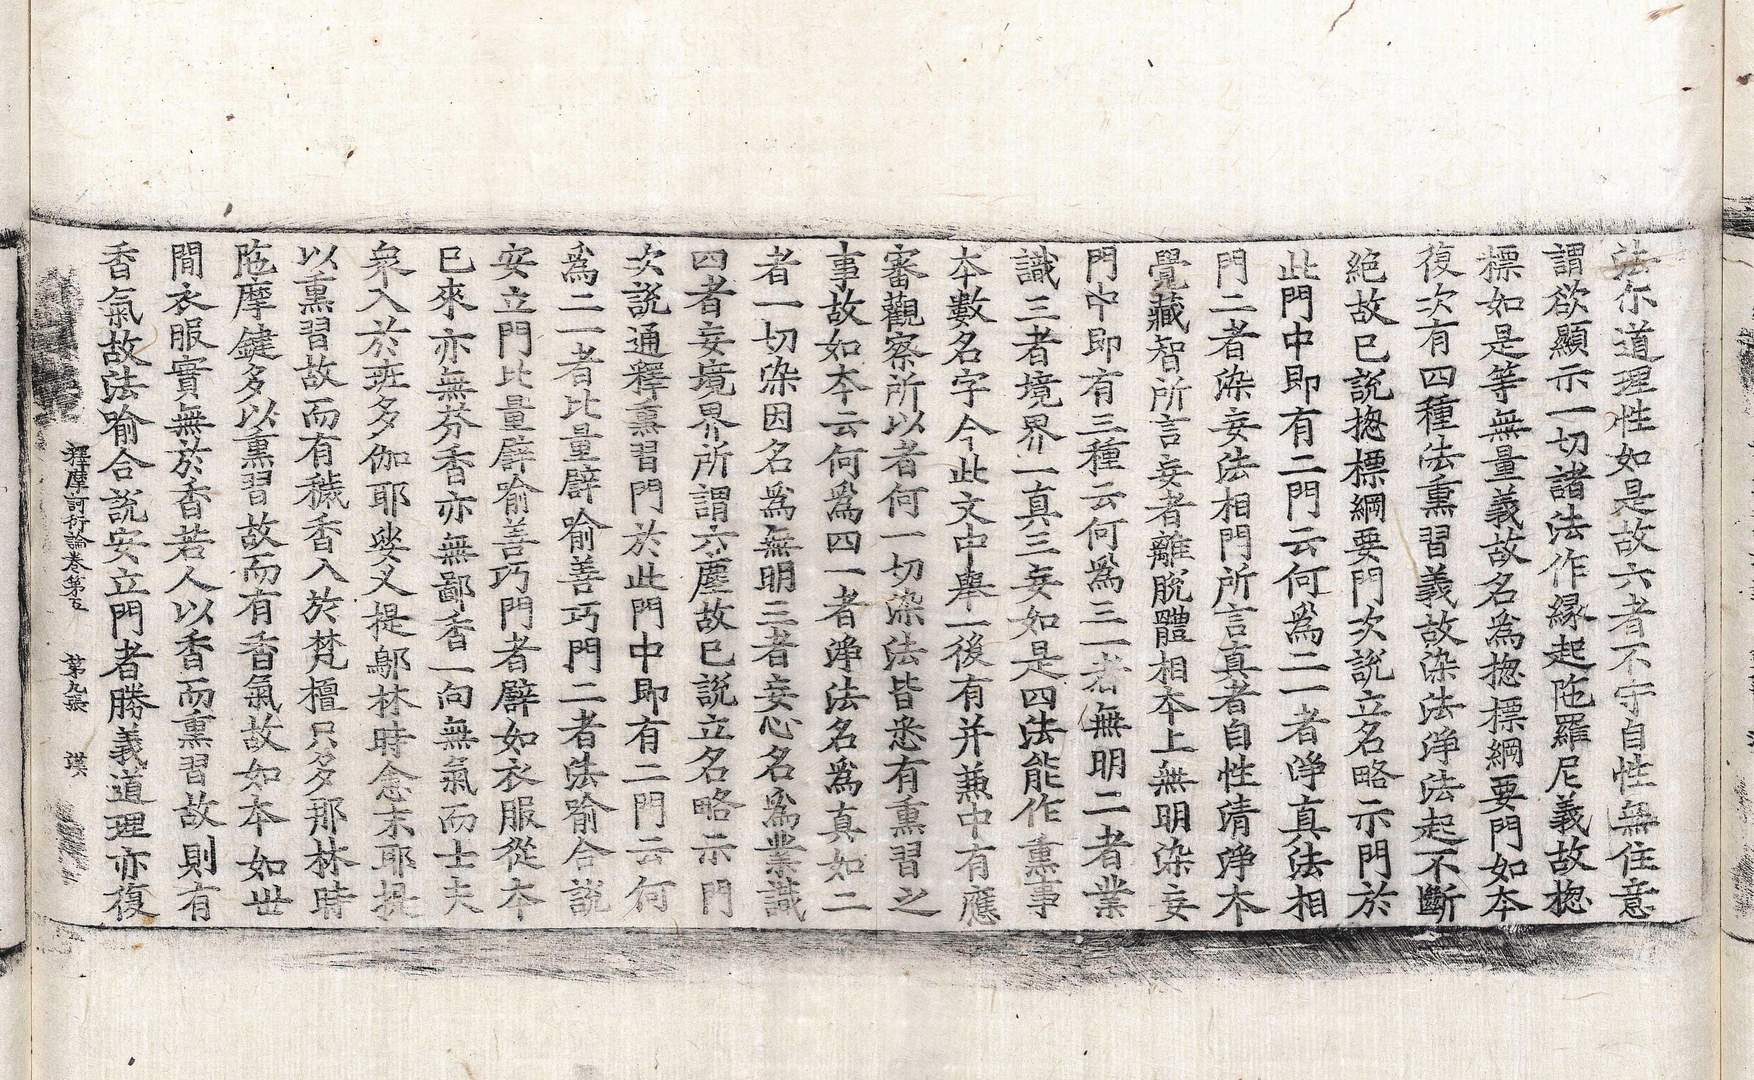 法尒道理性如是故六者不守自性無住意
謂欲顯示一切諸法作緣起陁羅尼義故揔
標如是等無量義故名爲揔標綱要門如本
復次有四種法熏習義故染法淨法起不斷
絶故已說揔標綱要門次說立名略示門於
此門中即有二門云何爲二一者淨真法相
門二者染妄法相門所言真者自性清淨本
覺藏智所言妄者離脫體相本上無明染妄
門中即有三種云何爲三一者無明二者業
識三者境界一真三妄如是四法能作熏事
本數名字今此文中舉一後有并兼中有應
審觀察所以者何一切染法皆悉有熏習之
事故如本云何爲四一者淨法名爲真如二
者一切染因名爲無明三者妄心名爲業識
四者妄境界所謂六塵故已說立名略示門
次說通釋熏習門於此門中即有二門云何
爲二一者比量譬喻善巧門二者法喻合說
安立門比量譬喻善巧門者譬如衣服從本
已來亦無芬香亦無鄙香一向無氣而士夫
衆入於班多伽耶娑叉提鄔林時念末耶提
以熏習故而有穢香入於梵檀只多那林時
陁摩鍵多以熏習故而有香氣故如本如世
閒衣服實無於香若人以香而熏習故則有
香氣故法喻合說安立門者勝義道理亦復
釋摩訶衍論卷第五 第九張 漢